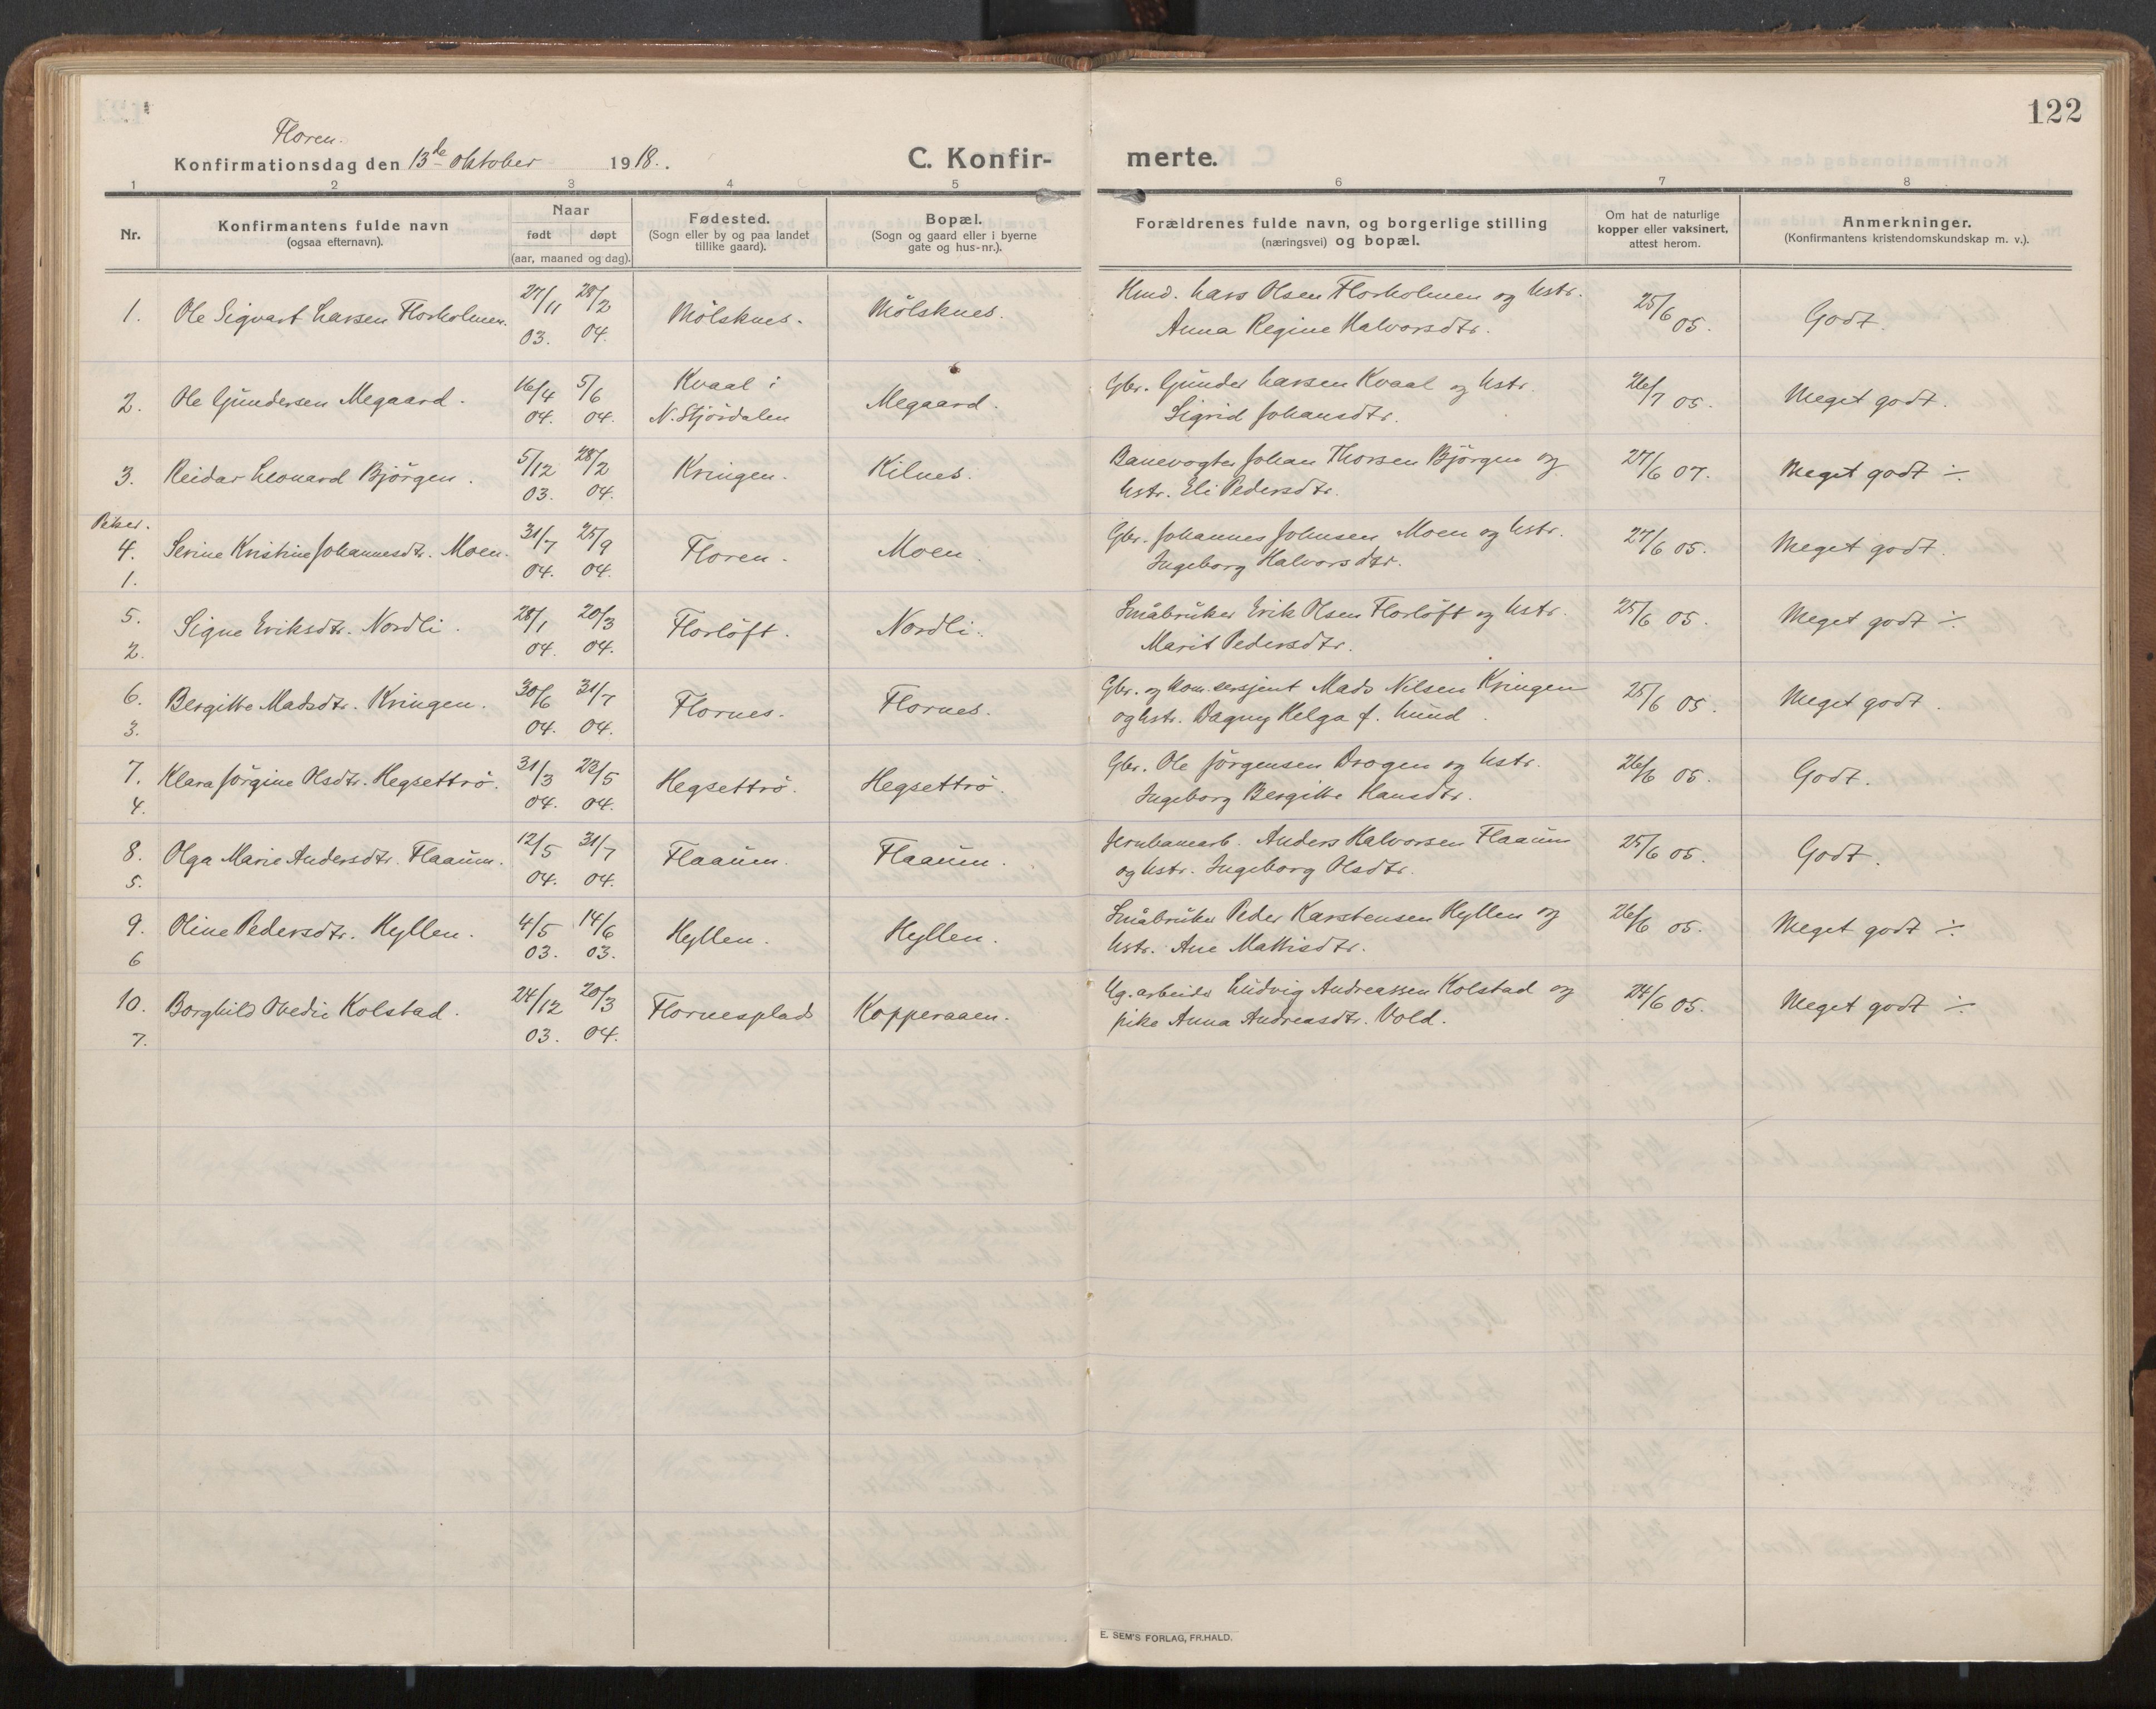 122
Floren.
Konfirmationsdag den 13de oktober 1918.
C. Konfir- merte.
1 2 3 4 5 6 7 8
Nr.
Konfirmantens fulde navn
(ogsaa efternavn).
Naar
født døpt
(aar, maaned og dag).
Fødested.
(Sogn eller by og paa landet
tillike gaard).
Bopæl.
(Sogn og gaard eller i byerne
gate og hus-nr.).
Forældrenes fulde navn, og borgerlige stilling
(næringsvei) og bopæl.
Om hat de naturlige
kopper eller vaksinert,
attest herom.
Anmerkninger.
(Konfirmantens kristendomskundskap m. v.).
1. Ole Sigvart Larsen Florholmen. 27/11 03. 28/2 04. Mölsknes. Mölsknes.
Hmd. Lars Olsen Florholmen og hstr.
Anna Regine Halvorsdtr.
25/6 05. Godt.
2. Ole Gundersen Megaard. 16/4 04. 5/6 04. Kvaal i
N. Stjördalen
Megaard.
Gbr. Gunder Larsen Kvaal og hstr.
Sigrid Johansdtr.
26/7 05. Meget godt.
3. Reidar Leonard Björgen. 5/12 03. 28/2 04. Kringen. Kilnes.
Banevogter Johan Thorsen Björgen og
hstr. Eli Pedersdtr.
27/6 07. Meget godt ÷
Piker.
4. Serine Kristine Johannesdtr. Moen. 31/7 04. 25/9 04. Floren. Moen.
1.
Gbr. Johannes Johnsen Moen og hstr.
Ingeborg Halvorsdtr.
27/6 05. Meget godt.
5. Signe Eriksdtr. Nordli. 28/1 04. 20/3 04. Florlöft. Nordli.
2.
Småbruker Erik Olsen Florlöft og hstr.
Marit Pedersdtr.
25/6 05. Meget godt ÷
6. Bergitte Madsdtr. Kringen. 30/6 04. 31/7 04. Flornes. Flornes.
3.
Gbr. og kom.sersjent Mads Nilsen Kringen
og hstr. Dagny Helga f. Lund.
25/6 05. Meget godt.
7. Klara Jörgine Olsdtr. Hegsettrö. 31/3 04. 23/5 04. Hegsettrö. Hegsettrö.
4.
Gbr. Ole Jörgensen Drogen og hstr.
Ingeborg Bergitte Hansdtr.
26/6 05. Godt.
8. Olga Marie Andersdtr. Flaaum. 12/5 04. 31/7 04. Flaaum. Flaaum.
5.
Jernbanearb. Anders Halvorsen Flaaum
og hstr. Ingeborg Olsdtr.
25/6 05. Godt.
9. Oline Pedersdtr. Hyllen. 4/5 03. 14/6 03. Hyllen. Hyllen.
6
Småbruker Peder Karstensen Hyllen og
hstr. Ane Mattisdtr.
26/6 05. Meget godt ÷
10. Borghild Ovedie Kolstad. 24/12 03. 20/3 04. Flornesplads Kopperaaen.
7.
Ug. arbeider Ludvig Andreassen Kolstad og
pike Anna Andreasdtr. Vold.
24/6 05. Meget godt ÷
E. SEM'S FORLAG, FR.HALD.